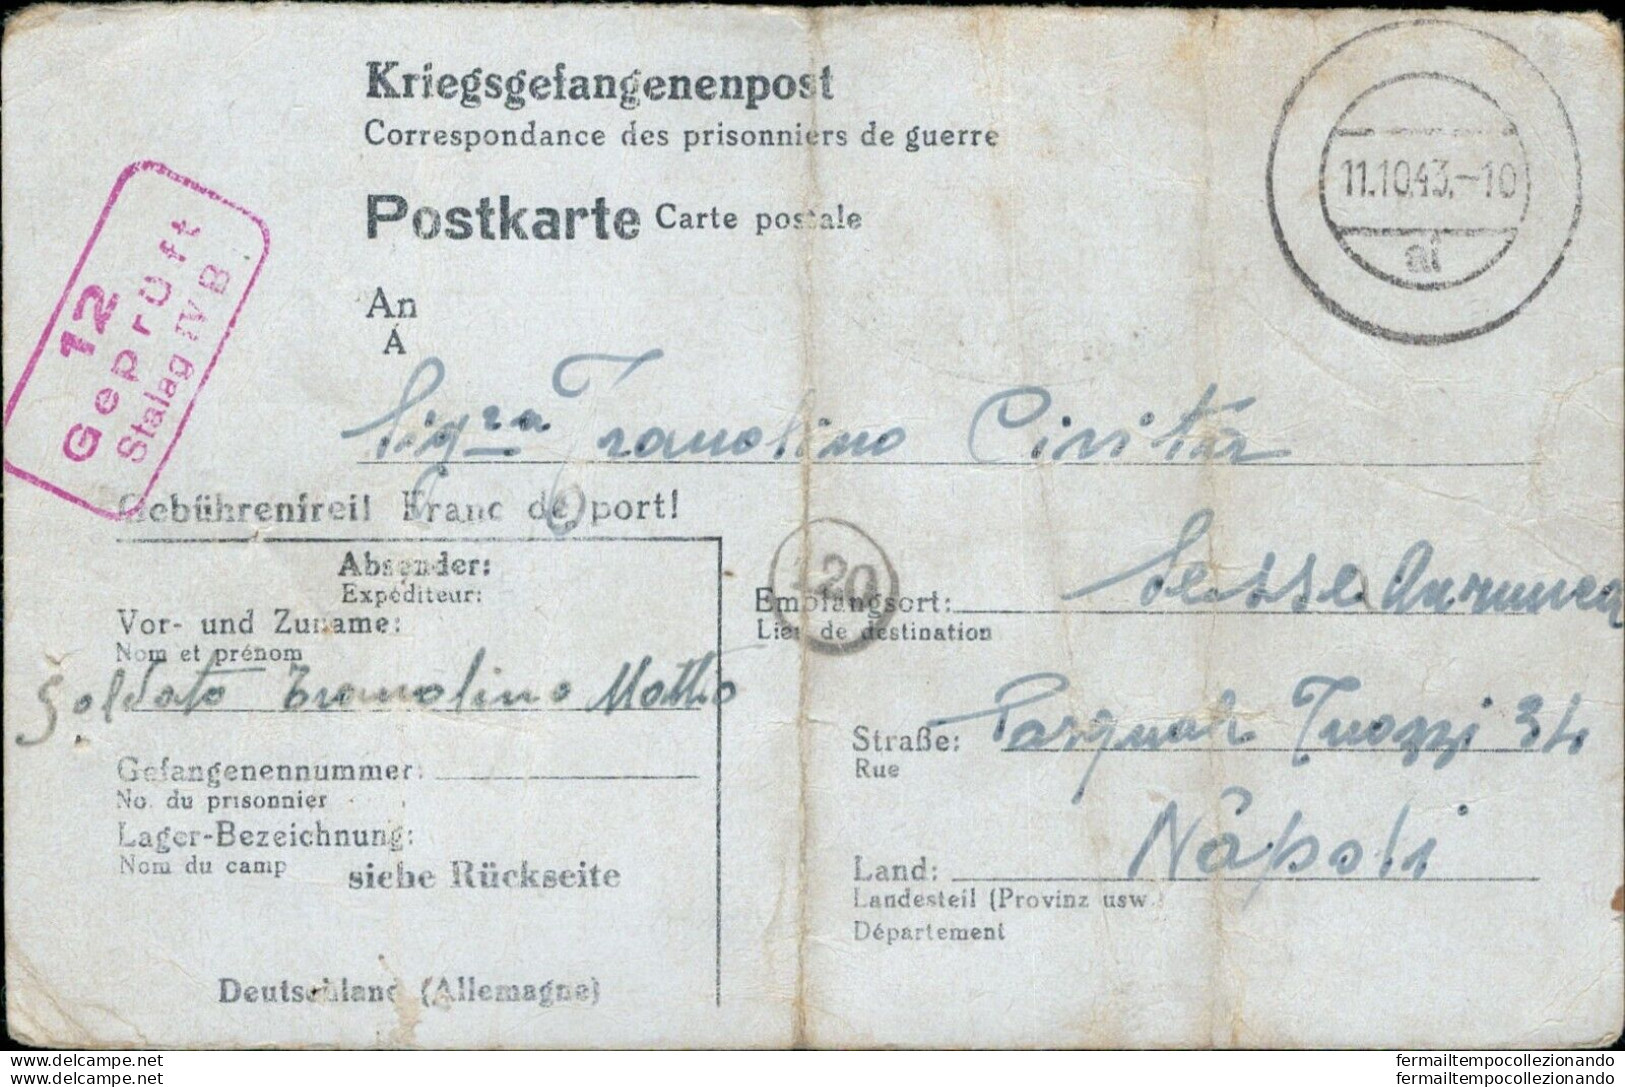 Kriegsgefangenenpost
Correspondance des prisonniers de guerre
Postkarte Carte postale
11.10.43.-10
12
Geprüft
Stalag IV B
An
A
Sig.ra Tranolino Civita
Gebührenfrei! Franc de port!
6
120
Absender:
Expéditeur:
Vor- und Zuname:
Nom et prénom
Soldato Tranolino Matteo
Gefangenennummer:
No. du prisonnier
Lager-Bezeichnung:
Nom du camp
siehe Rückseite
Deutschland (Allemagne)
Empfangsort: Sessa Aurunca
Lieu de destination
Straße: Pasquale Tuozzi 34
Rue
Napoli
Land:
Landesteil (Provinz usw.)
Département
fermailtempocollezionando
fermailtempocollezionando
www.delcampe.net
www.delcampe.net